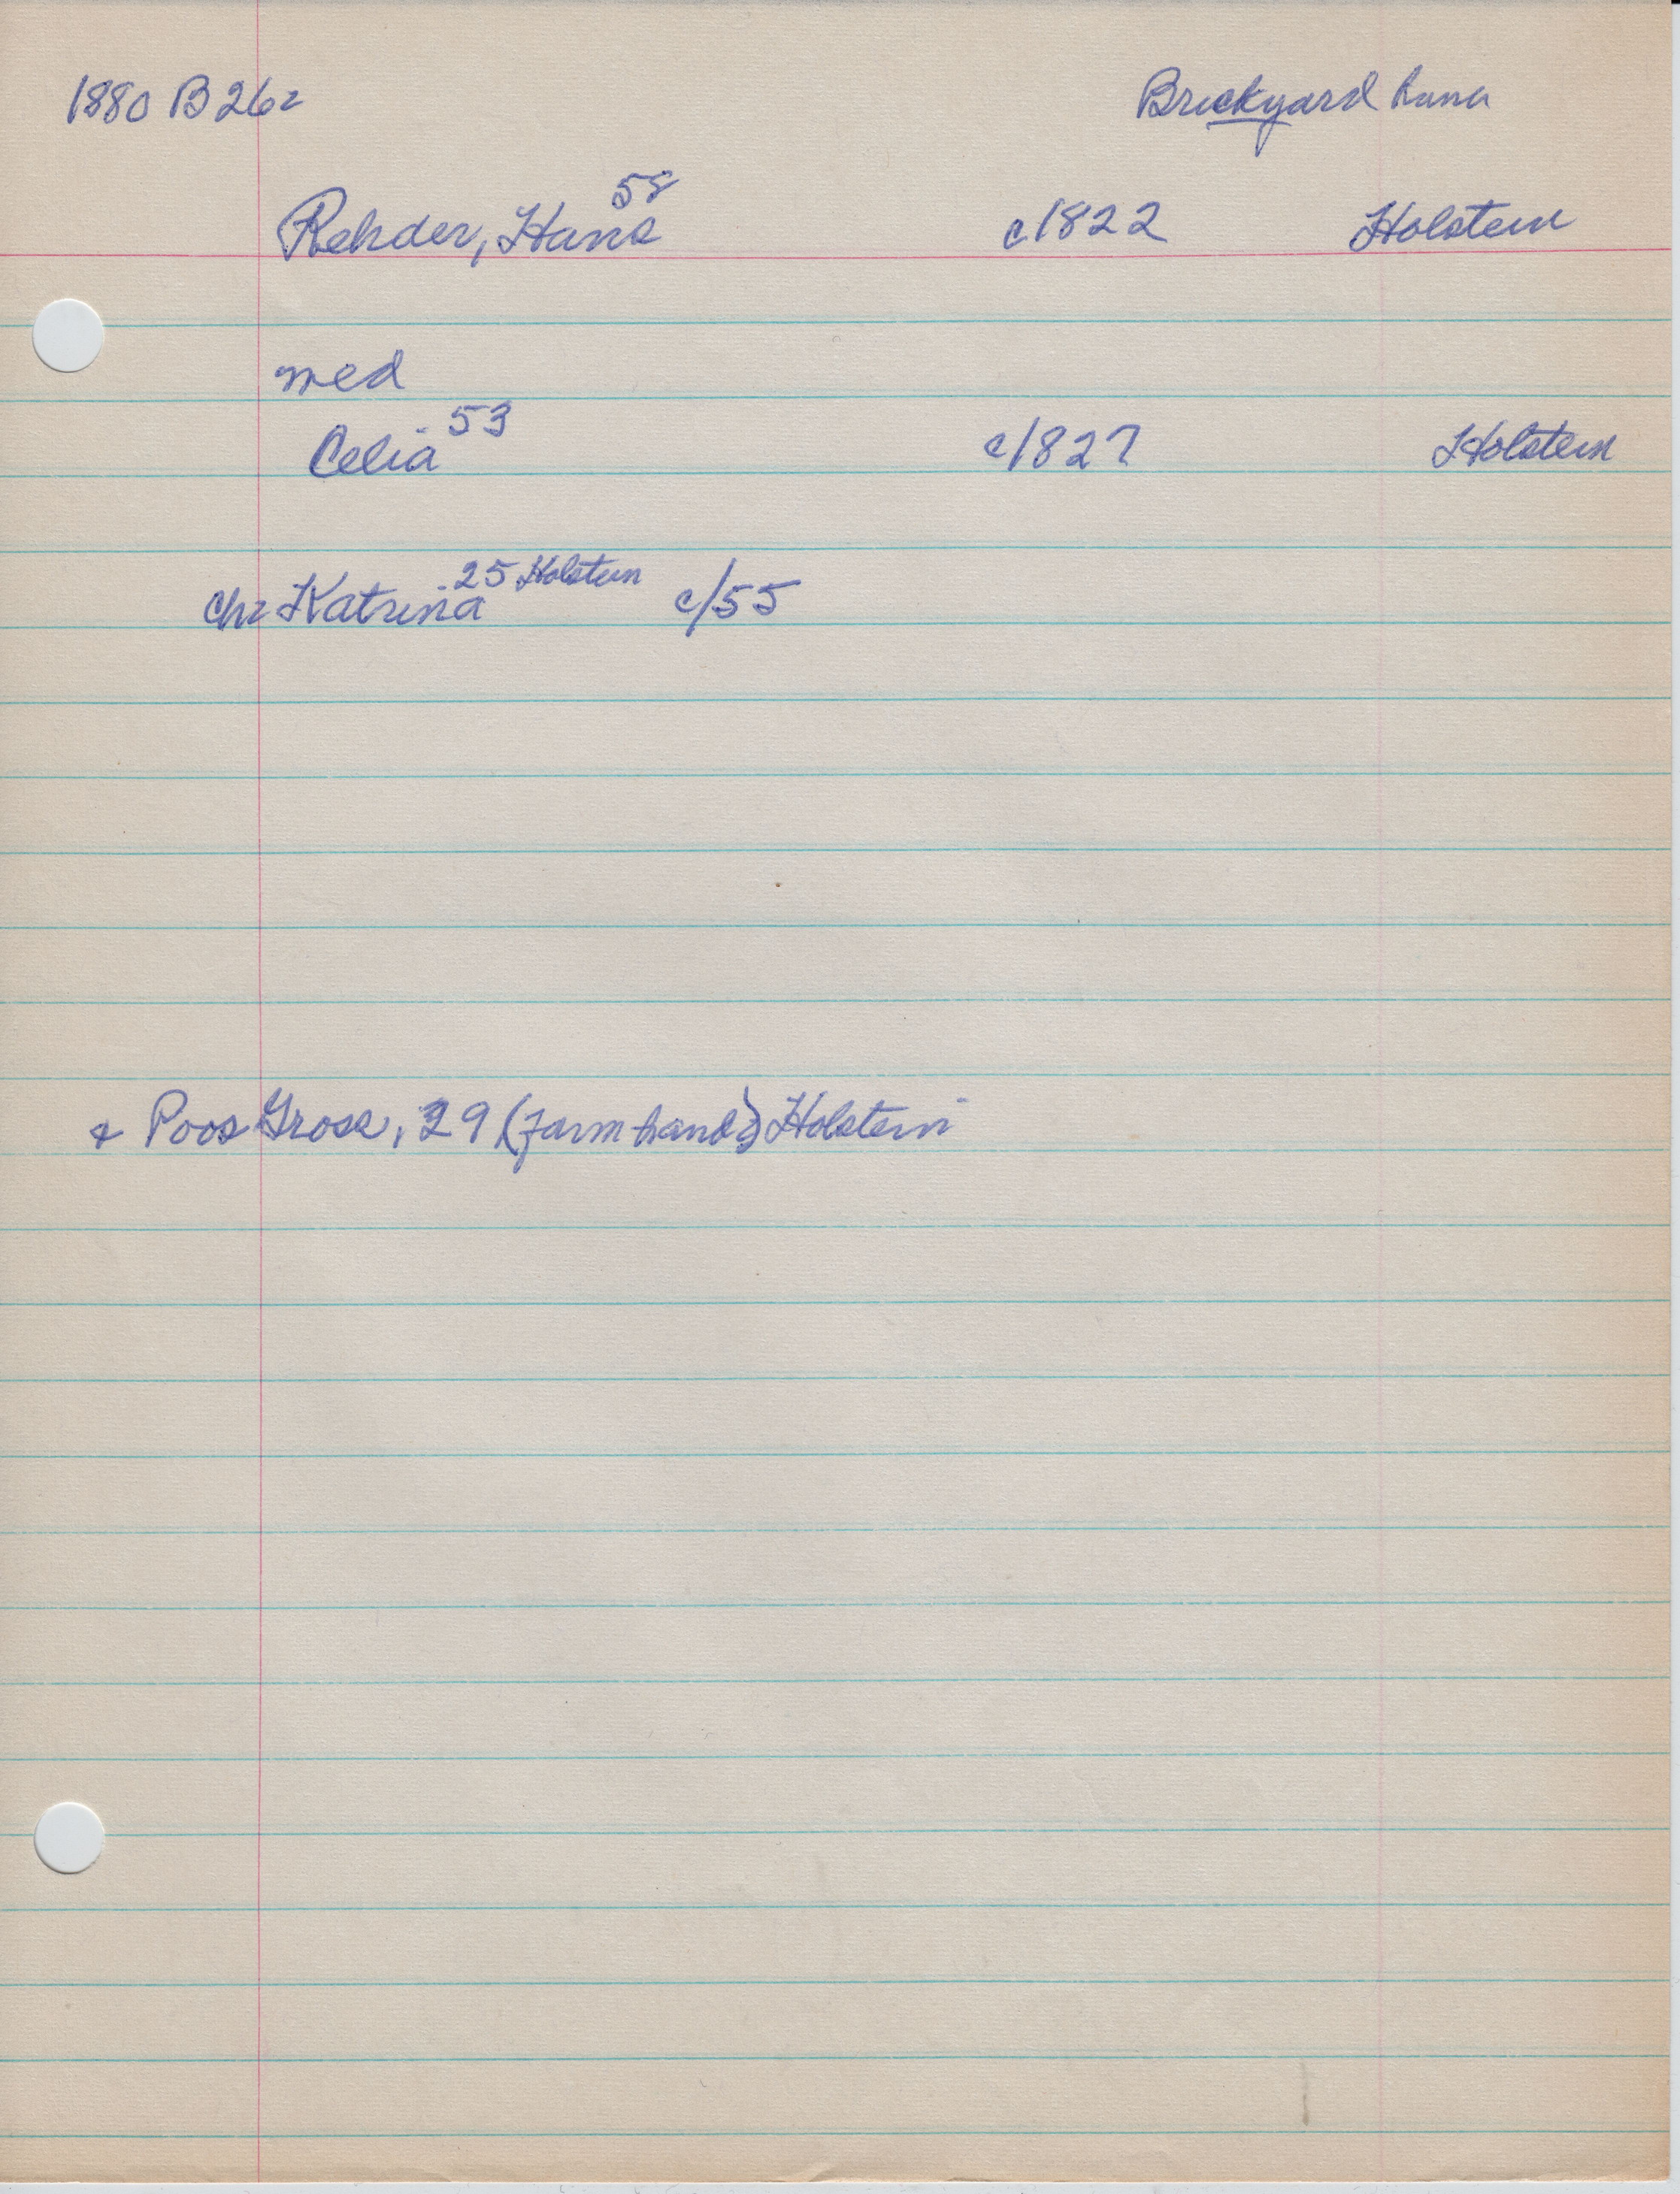 1880 B 262 Brickyard
Rehder, Hans 58 c1822 Holstein
med
Celia 53 c1827 Holstein
chr Katrina 25 Holstein c/55
+ Poos Gross, 29 (farm hand) Holstein